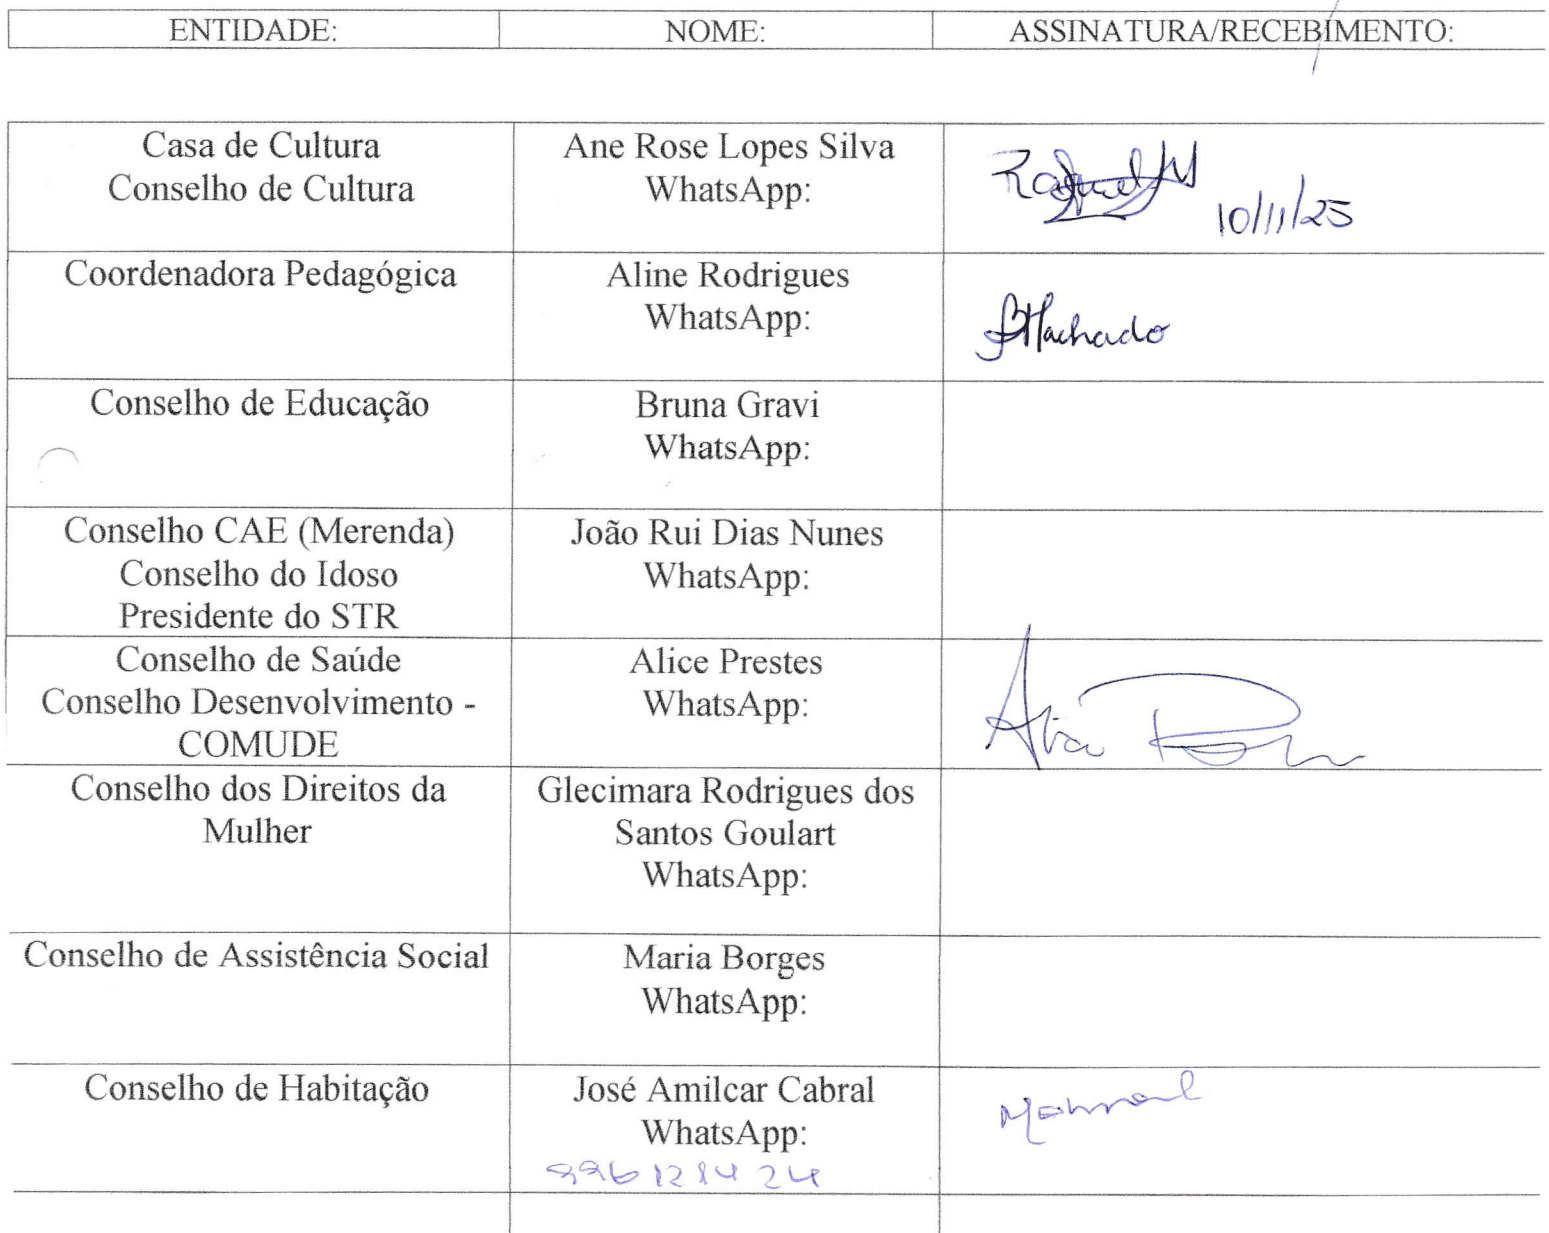 ENTIDADE: NOME: ASSINATURA/RECEBIMENTO:
Casa de Cultura
Conselho de Cultura
Ane Rose Lopes Silva
WhatsApp:
10/11/25
Coordenadora Pedagógica
Aline Rodrigues
WhatsApp:
Machado
Conselho de Educação
Bruna Gravi
WhatsApp:
Conselho CAE (Merenda)
Conselho do Idoso
Presidente do STR
João Rui Dias Nunes
WhatsApp:
Conselho de Saúde
Conselho Desenvolvimento -
COMUDE
Alice Prestes
WhatsApp:
Conselho dos Direitos da
Mulher
Glecimara Rodrigues dos
Santos Goulart
WhatsApp:
Conselho de Assistência Social
Maria Borges
WhatsApp:
Conselho de Habitação
José Amilcar Cabral
WhatsApp: